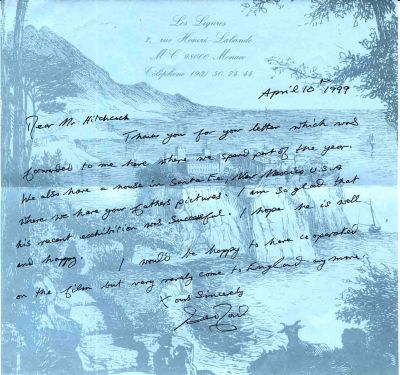 Les Ligures
2, rue Honoré-Labande
MC 98000 Monaco
Téléphone (93) 50.74.44
April 10th 1999
Dear Mr Hitchcock
Thank you for your letter which was
forwarded to me here where we spend part of the year.
We also have a house in Santa Fe, New Mexico U.S.A
where we have your fathers pictures. I am so glad that
his recent exhibition was successful. I hope he is well
and happy. I would be happy to have co operated
on the film but very rarely come to England any more.
Yours Sincerely